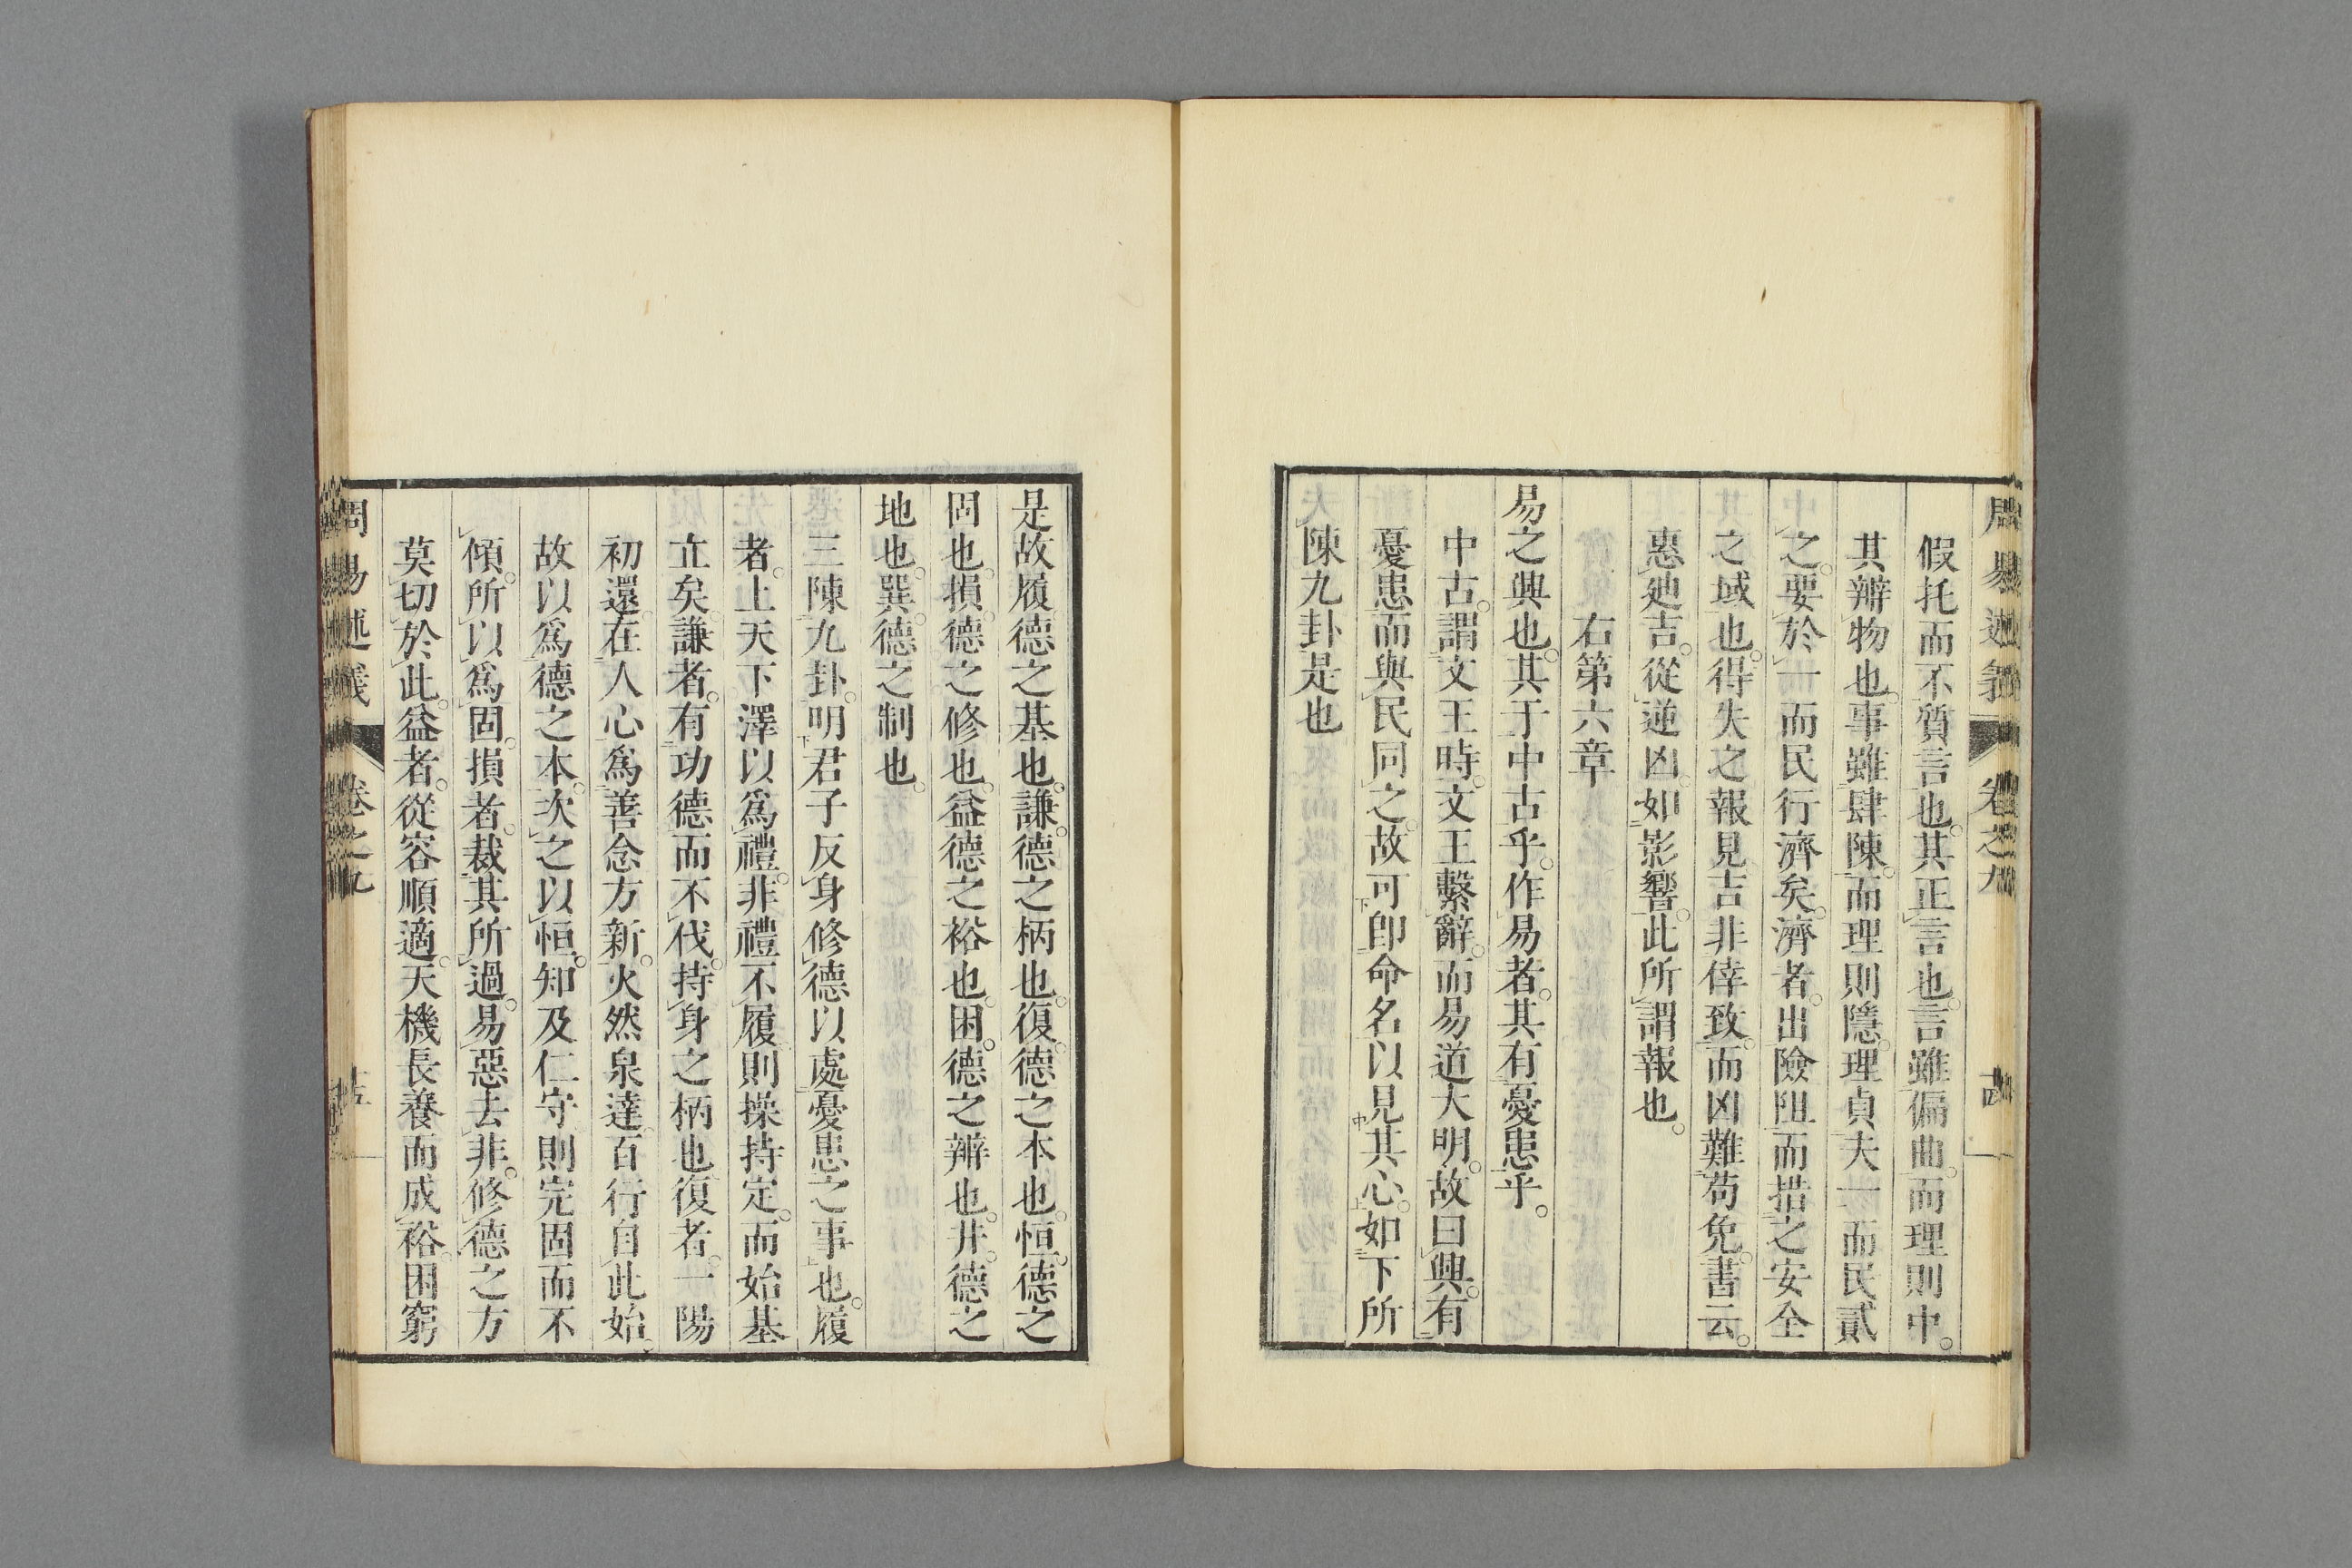 周易述義 卷之九 十四
假托而不質言也。其正言也。言雖偏曲。而理則中。
其辨物也。事雖肆陳。而理則隱。理貞夫一而民貳
之。要於一而民行濟矣。濟者。出險阻而措之安全
之域也。得失之報見吉非倖致。而凶難苟免。書云。
惠廸吉。從逆凶。如影響。此所謂報也。
右第六章
易之興也。其于中古乎。作易者。其有憂患乎。
中古。謂文王時。文王繫辭。而易道大明。故曰興。有
憂患而與民同之。故可卽命名以見其心。如下所
陳九卦是也
是故履德之基也。謙。德之柄也。復。德之本也。恒。德之
固也。損。德之修也。益德之裕也。困。德之辨也。井。德之
地也。巽。德之制也。
三陳九卦。明君子反身修德以處憂患之事也。履
者。上天下澤以爲禮。非禮不履則操持定。而始基
立矣。謙者。有功德而不伐。持身之柄也。復者。一陽
初還。在人心爲善念方新。火然泉達。百行自此始。
故以爲德之本。次之以恒。知及仁守則完固而不
傾。所以爲固。損者。裁其所過。易惡去非。修德之方
莫切於此。益者。從容順適。天機長養而成裕。困窮
周易述義 卷之九 十五